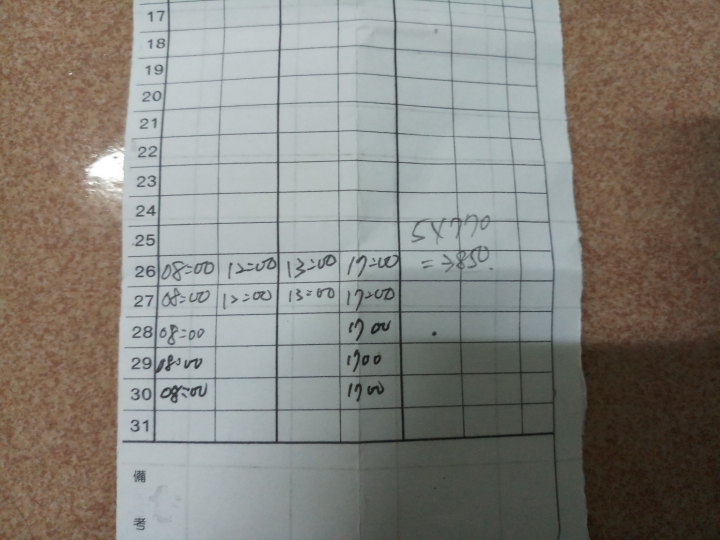 17
18
19
20
21
22
23
24
25 5X770
26 08:00 12:00 13:00 17:00 = 3850
27 08:00 12:00 13:00 17:00
28 08:00 17 00
29 08:00 1700
30 08:00 17 00
31
備
考